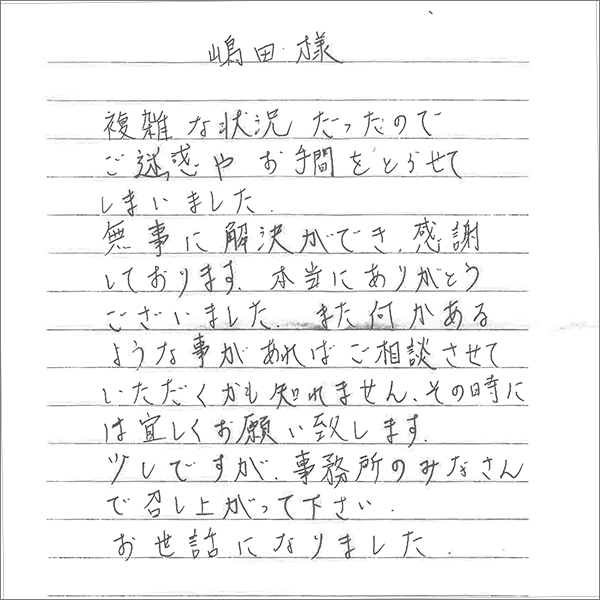 嶋田 様
複雑な状況だったので
ご迷惑やお手間をとらせて
しまいました.
無事に解決ができ、感謝
しております. 本当にありがとう
ございました. また何かある
ような事があればご相談させて
いただくかも知れません、その時に
は宜しくお願い致します.
少しですが、事務所のみなさん
で召し上がって下さい.
お世話になりました.